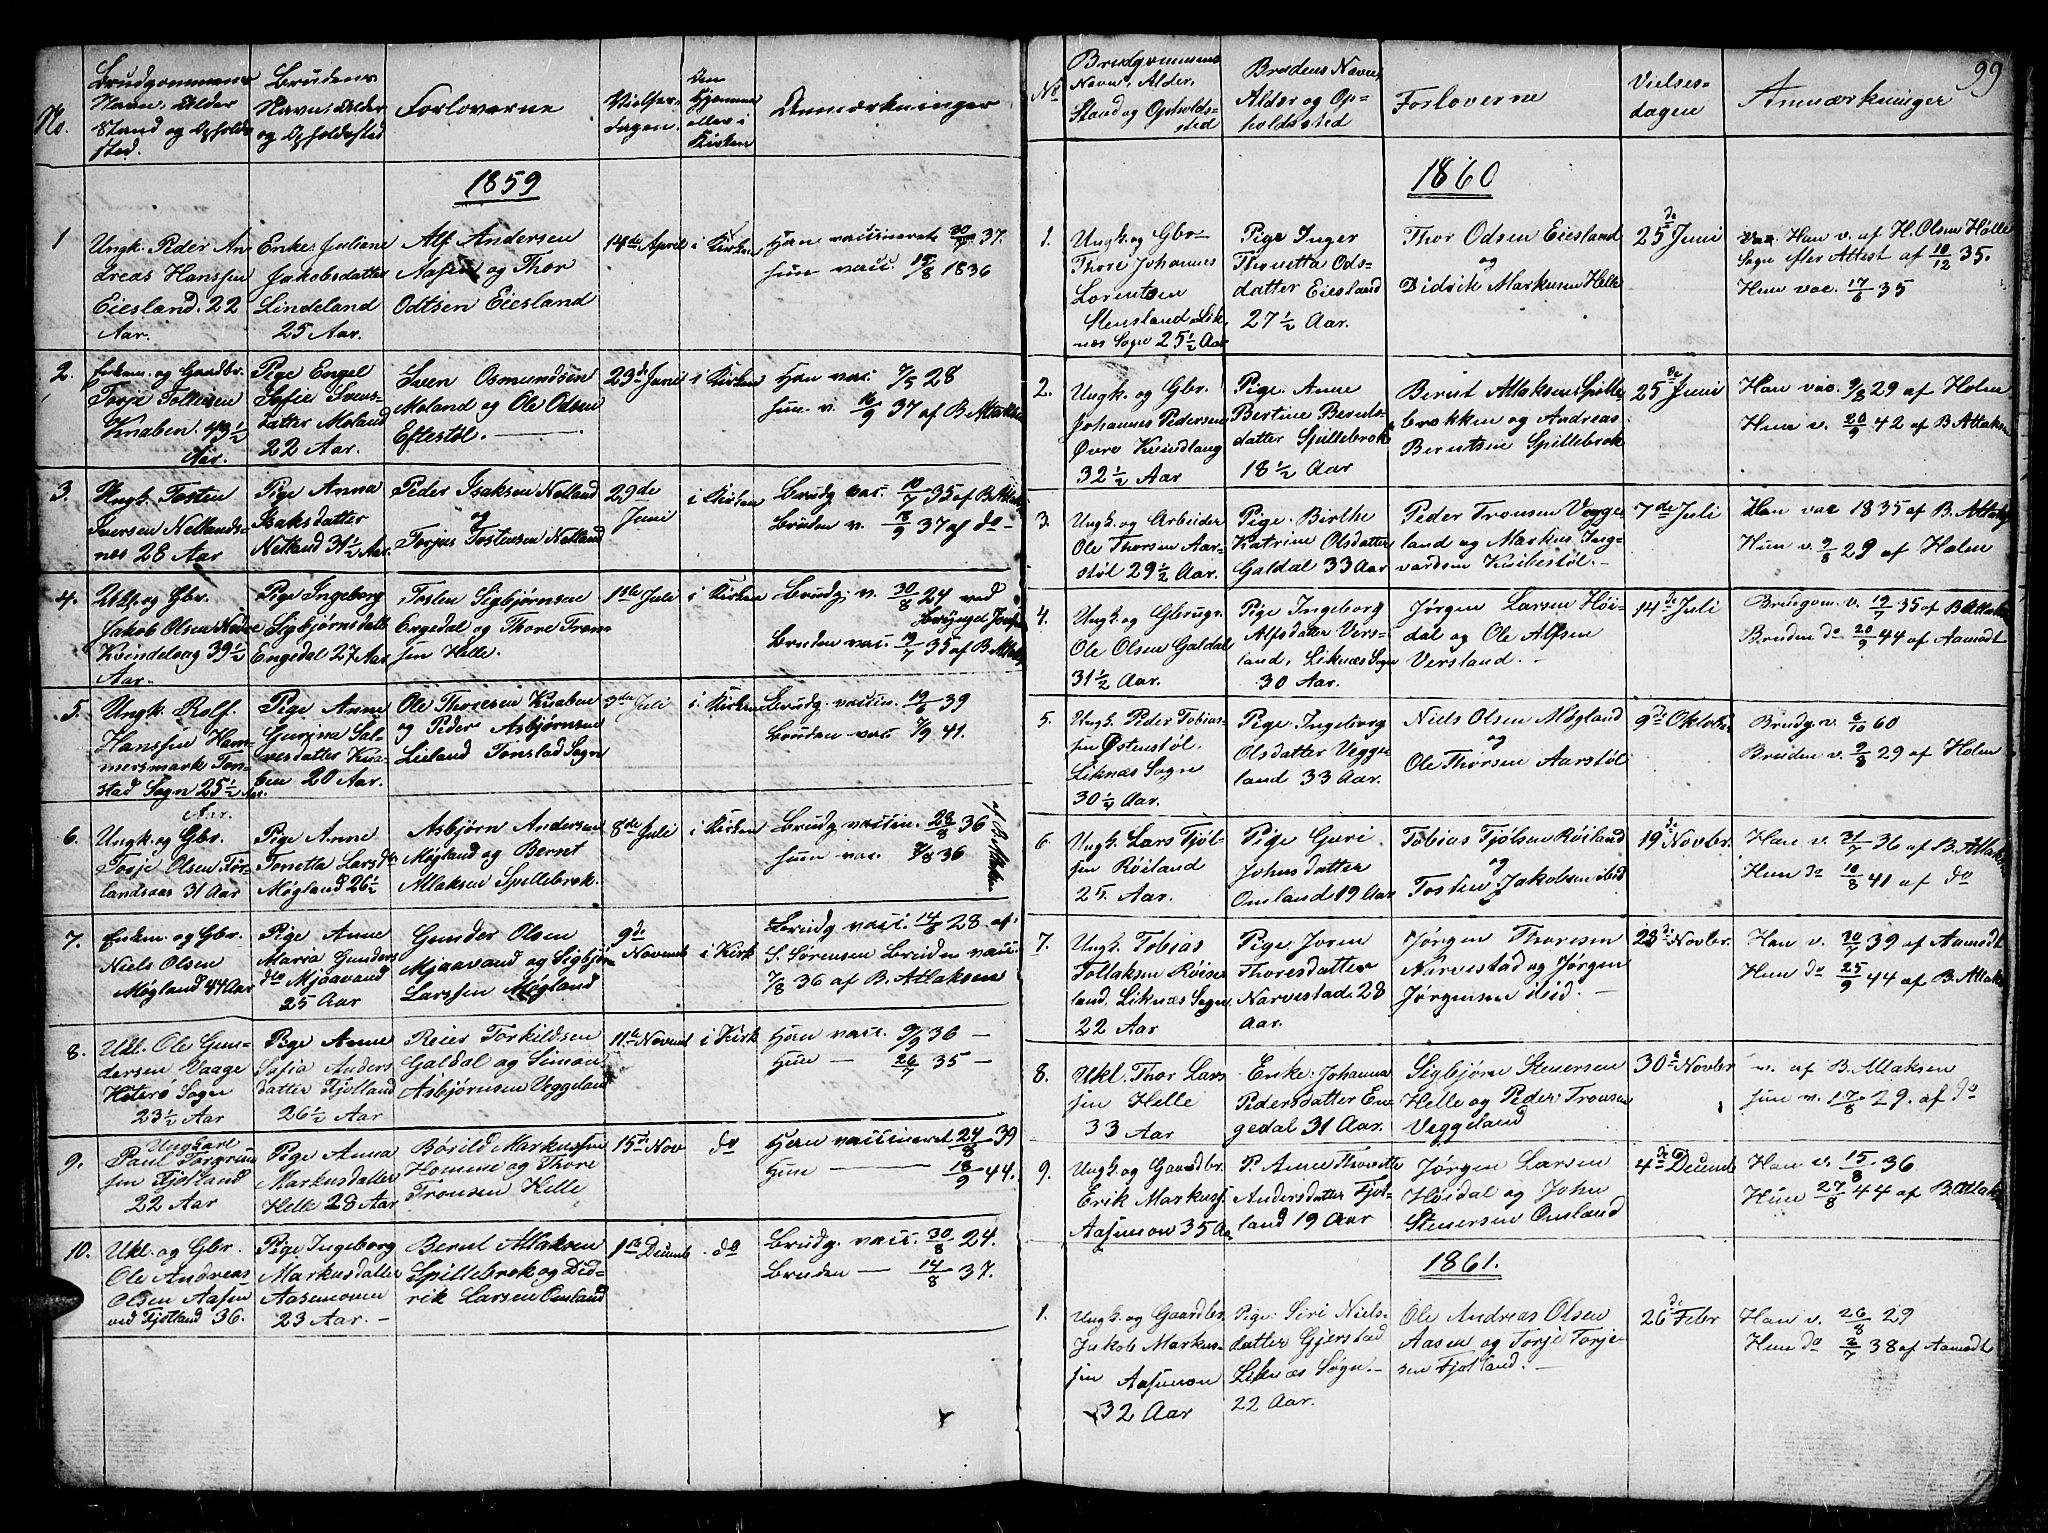 No.
Brudgommens
Navn, Alder
Stand og Opholds
sted.
Brudens
Navn, Alder
og Opholdssted
Forloverne
Vielses-
dagen.
Om
Hjemme
eller i
Kirken
Anmærkninger
1859
1
Ungk. Peder An
dreas Hanssen
Eiesland. 22
Aar.
Enke Juliane
Jakobsdatter
Lindeland
25 Aar.
Alf Andersen
Aasen og Thor
Odtsen Eiesland
14de April
i Kirken
Han vaccineret 20/7 37.
Hun vacc. 15/8 1836
2.
Enkem. og Gaardbr.
Torje Tollisen
Knaben 43 1/2
Aar.
Pige Engel
Sofie Svens-
datter Moland
22 Aar.
Sven Osmundsen
Moland og Ole Odsen
Eftestøl.
23de Juni
i Kirken
Han vacc. 7/5 28
Hun v. 16/9 37 af B. Atlaksen
3.
Ungk. Tosten
Iversen Netlands-
nes 28 Aar
Pige Anna
Isaksdatter
Netland 31 1/2 Aar.
Peder Isaksen Netland
og
Torjus Tostensen Netland
29de
Juni
i Kirken
Brudg. vac. 10/7 35 af B. Atlaks
Bruden v. 18/9 37 af do
4.
Ukl. og Gbr.
Jakob Olsen Nedre
Kvindelaag 39 1/2
Aar.
Pige Ingeborg
Sigbjørnsdatt
Engedal 27 Aar.
Tosten Sigbjørnsen
Engedal og Thore Tron-
sen Helle.
1ste Juli
i Kirken
Brudg. v. 30/8 24 ved
Bruden vacc. 19/7 35 af B. Atlaks
5.
Ungk. Rolf
Hanssen Ham-
mersmark Ton-
stad Sogn 25 1/2 Aar.
Pige Anne
Gurina Sal-
vesdatter Kna-
ben 20 Aar.
Ole Thoresen Knaben
og Peder Asbjørnsen
Lieland Tonstad Sogn
3die Juli
i Kirken
Brudg. vaccin. 19/6 39
Bruden vacc. 7/9 41.
6.
Ungk. og Gbr.
Torje Olsen Tør-
landsaas 31 Aar
Aar.
Pige Anne
Tonetta Larsdtr
Møgland 26 1/2
Asbjørn Andersen
Møgland og Bernt
Atlaksen Spillebrok.
8de Juli
i Kirken
Brudg. vaccin. 28/8 36
Hun vacc. 7/8 36
af B. Atlaksen
7.
Enkem. og Gbr.
Niels Olsen
Møgland 44 Aar
Pige Anne
Maria Gunders
dtr Mjaavand
25 Aar
Gunder Olsen
Mjaavand og Sigbjørn
Larssen Møgland
9de
Novemb
i Kirk
Brudg vacc. 14/8 28 af
S. Sørensen Bruden vacc
7/8 36 af B. Atlaksen
8.
Ukl. Ole Gun-
dersen Vaage
Hiterø Sogn
23 1/2 Aar
Pige Anne
Sofia Anders
datter Fjotland
26 1/2 Aar
Reier Torkildsen
Galdal og Simon
Asbjørnsen Veggeland
11te Novemb
i Kirk
Han vacc. 9/9 36 —
Hun — 26/7 35 —
9.
Ungkarl
Paul Torgrim
sen Fjotland
22 Aar
Pige Anna
Markusdatter
Helle 28 Aar
Børild Markussen
Homme og Thore
Tronsen Helle
15de Nov
do
Han vaccineret 24/8 39
Hun — 18/9 44.
10.
Ukl. og Gbr.
Ole Andreas
Olsen Aasen
ved Fjotland 36.
Pige Ingeborg
Markusdatter
Aasemoen
23 Aar. —
Bernt Atlaksen
Spillebrok og Did-
rik Larsen Omland
1ste Decemb
do
Brudg. vacc. 30/8 24.
Bruden — 14/8 37.
99
No
Brudgommens
Navn, Alder,
Stand og Opholds-
sted
Brudens Navn,
Alder og Op-
holdssted
Forloverne
Vielses-
dagen
Anmærkninger
1860
1.
Ungk. og Gbr
Thore Johannes
Lorentsen
Stensland, Lik-
næs Sogn 25 1/2 Aar
Pige Inger
Thonetta Ods-
datter Eiesland
27 1/2 Aar.
Thor Odsen Eiesland
og
Didrik Markusen Helle
25de Juni
Han v. af H. Olsen Hølle
Sogn efter Attest af 10/12 35.
Hun vac. 17/6 35
2.
Ungk. og Gbr.
Johannes Pedersen
Øvre Kvindlaug
32 1/2 Aar
Pige Anne
Bertine Bernts-
datter Spillebrok
18 1/2 Aar
Bernt Atlaksen Spille-
brokken og Andreas
Berntsen Spillebrok
25de Juni
Han vac. 9/8 29 af Holm
Hun v. 20/9 42 af B. Atlaksen
3.
Ungk. og Arbeider
Ole Thorsen Aar-
støl 29 1/2 Aar.
Pige Birthe
Katrine Olsdatter
Galdal 33 Aar
Peder Tronsen Vegge-
land og Markus Ing-
vardsen Kvibestøl.
7de Juli
Han vac 1835 af B. Atlaks
Hun v. 9/8 29 af Holm
4.
Ungk. og Gbrugr.
Ole Olsen Galdal
31 1/2 Aar.
Pige Ingeborg
Alfsdatter Vers-
land, Liknæs Sogn
30 Aar.
Jørgen Larsen Høi-
dal og Ole Alfsen
Versland. —
14de Juli
Brudgom. v. 19/7 35 af B. Atlaks
Bruden do 20/9 44 af Aamodt
5.
Ungk. Peder Tobias-
sen Østenstøl,
Liknæs Sogn
30 1/4 Aar.
Pige Ingeborg
Olsdatter Vegge
land 33 Aar.
Niels Olsen Møgland
og
Ole Thorsen Aarstøl
9de Oktobr.
Brudg. v. 6/10 60
Bruden v. 9/8 29 af Holm
6.
Ungk. Lars Tjøl-
sen Røiland
25 Aar.
Pige Guri
Johnsdatter
Omland 19 Aar
Tobias Tjølsen Røiland
og
Tosten Jakobsen ibid
19de Novbr.
Han v. 31/7 36 af B. Atlaksen
Hun do 10/8 41 af do
7.
Ungk. Tobias
Tollaksen Røise-
land, Liknæs Sogn,
22 Aar
Pige Joren
Thoresdatter
Narvestad. 28
Aar.
Jørgen Thoresen
Narvestad og Jørgen
Jørgensen ibid. —
28de Novbr.
Han v. 30/7 39 af Aamodt
Hun do 25/9 44 af B. Atlaks
8.
Ukl. Thor Lars
sen Helle
33 Aar
Enke Johanna
Pedersdatter En-
gedal 31 Aar.
Sigbjørn Stenersen
Helle og Peder Tronsen
Veggeland
30de Novbr
v. af B. Atlaksen
Hun v. 17/8 29. af do
9.
Ungk. og Gaardbr.
Erik Markuss.
Aasemoen 35 Aar
P. Anne Thonette
Andersdatter Fjot-
land 19 Aar
Jørgen Larsen
Høidal og John
Stenersen Omland
4de Decemb
Han v. 15/8 36
Hun 27/8 44 af B. Atlaks
1861.
1.
Ungk. og Gaardbr.
Jakob Markus-
sen Aasemoen
32 Aar
Pige Siri Niels-
datter Gjerstad
Liknæs Sogn. —
22 Aar.
Ole Andreas Olsen
Aasen og Torje Torje-
sen Fjotland. —
26de Febr
Han v. 26/8 29
Hun do 2/7 38 af Aamodt